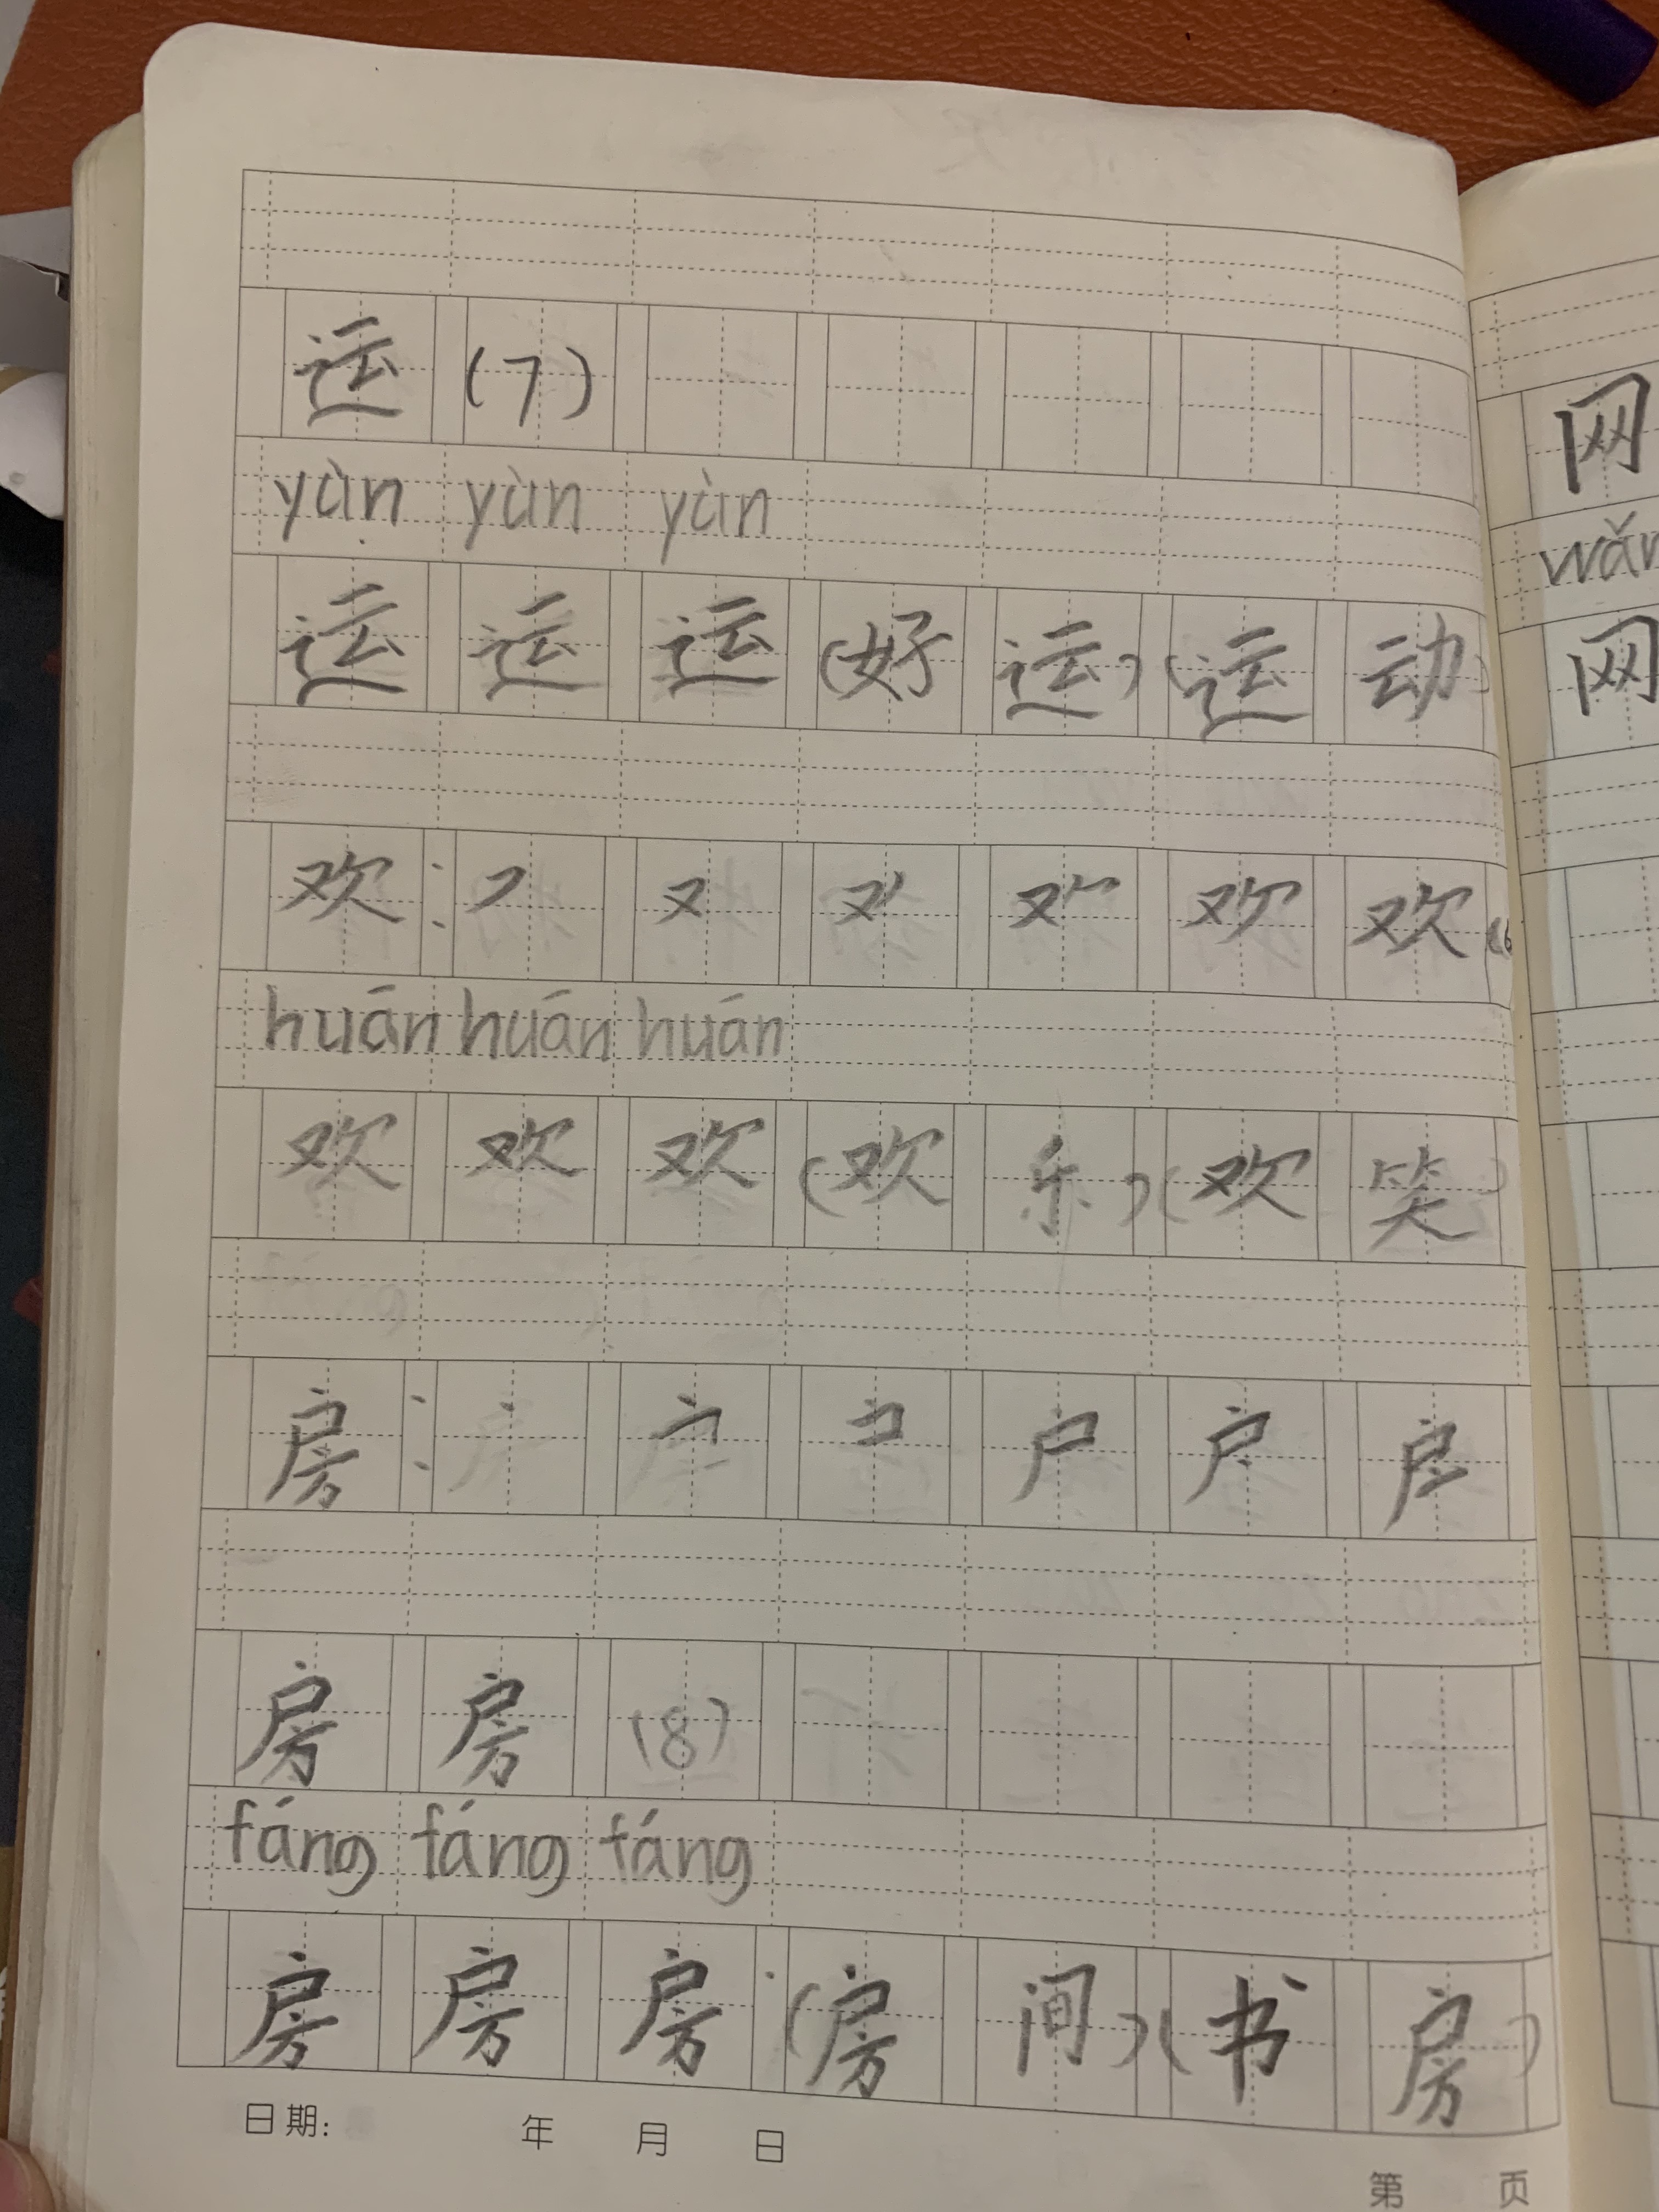 运 (7)
yùn yùn yùn
运 运 运 (好 运) (运 动)
欢: フ 又 欢 (6
huán huán huán
欢 欢 欢 (欢 乐) (欢 笑)
房: 丶 户
房 房 (8)
fáng fáng fáng
房 房 房: (房 间) (书 房)
日期: 年 月 日
第 页
网
wǎn
网